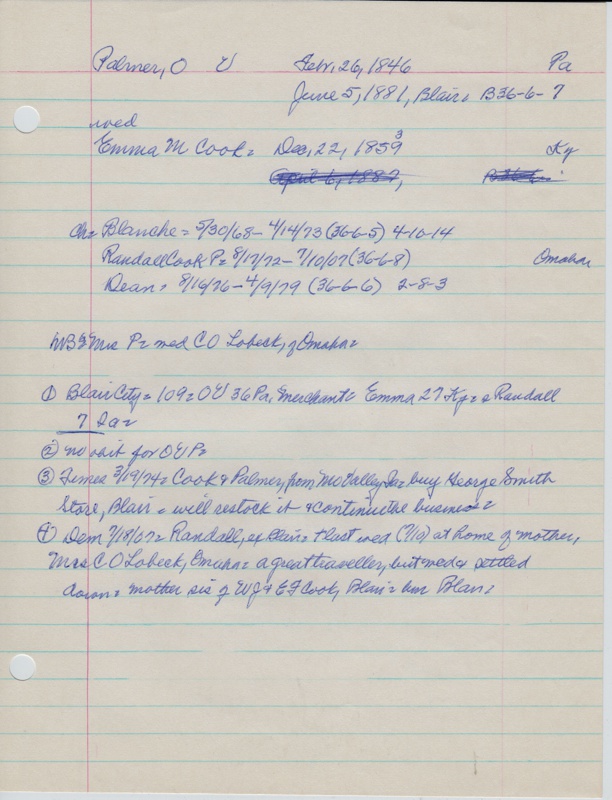 Palmer, O V Febr. 26, 1846 Pa
June 5, 1881, Blair= B36-6-7
wed
Emma M Cook= Dec, 22, 1859 3 Ky
April 6, 1887,
ch= Blanche= 5/30/68- 4/14/73 (36-6-5) 4-10-14
Randall Cook P= 8/17/72- 7/10/07 (36-6-8) Omaha
Dean= 8/16/76- 4/9/79 (36-6-6) 2-8-3
NB= Mrs P= wed C O Lobeck, of Omaha=
① Blair City= 109= OV 36 Pa, Merchant= Emma 27 Ky= s Randall
7 Ia=
② no obit for OV P=
③ Times 3/19/74= Cook & Palmer, from Mo Valley, Ia= buy George Smith
Store, Blair= will restock it & continue the business=
④ Dem 7/18/07= Randall, ex Blair= last wed (7/10) at home of mother,
Mrs C O Lobeck, Omaha= a great traveller, but wed & settled
down= mother sis of WJ & EF Cook, Blair= bur Blair=